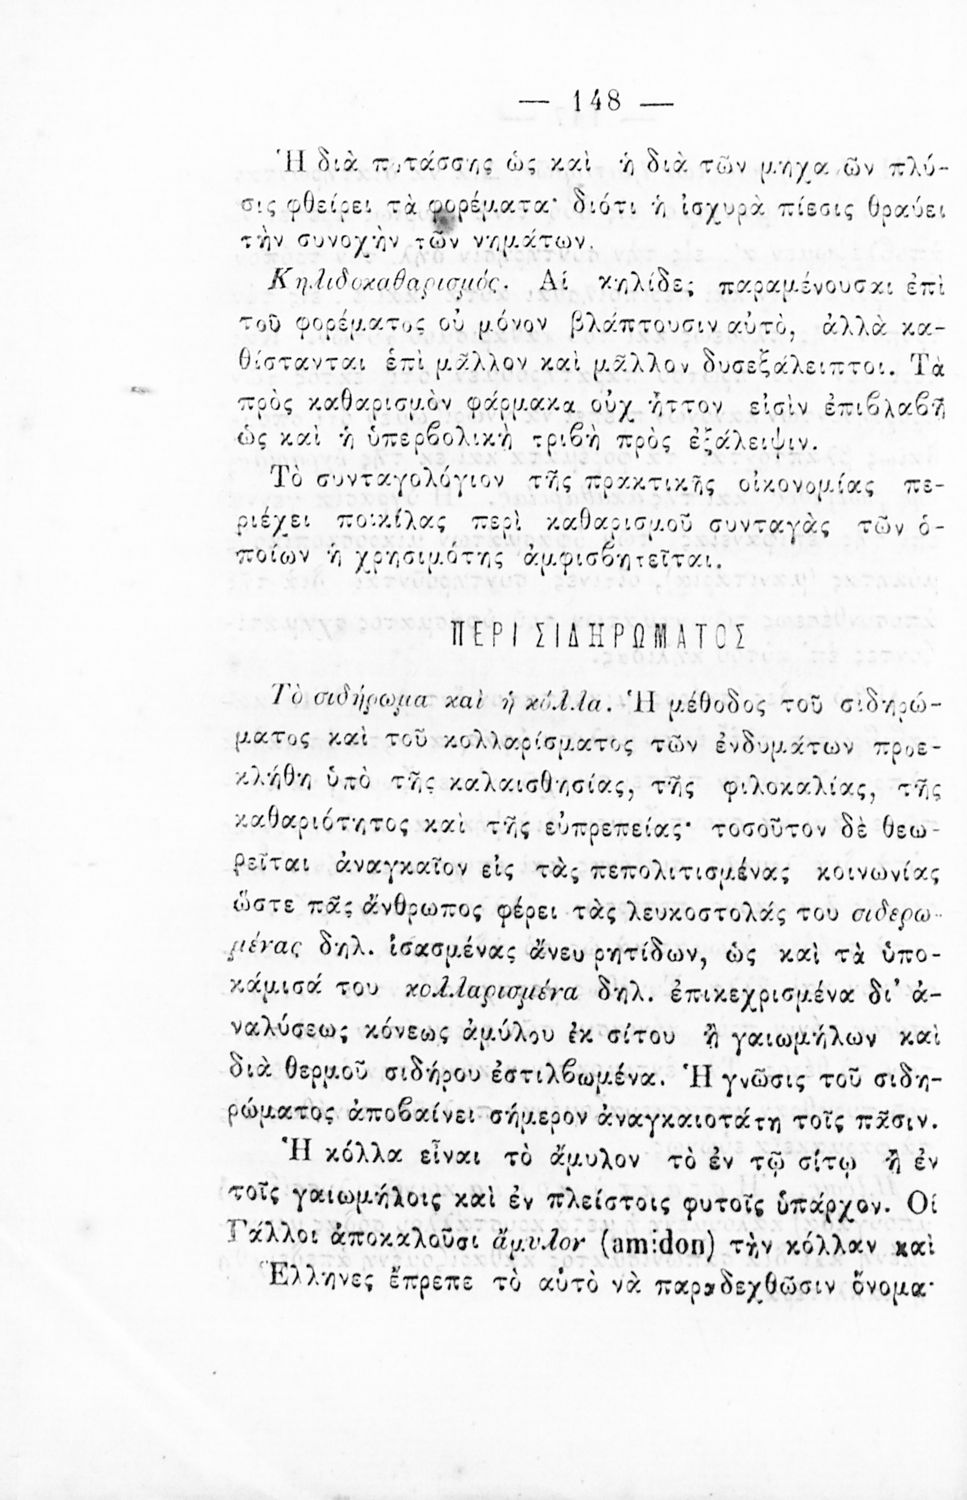 — 148 —
Ἡ διὰ ποτάσσης ὡς καὶ ἡ διὰ τῶν μηχανῶν πλύ-
σις φθείρει τὰ φορέματα· διότι ἡ ἰσχυρὰ πίεσις θραύει
τὴν συνοχὴν τῶν νημάτων.
Κηλιδοκαθαρισμός. Αἱ κηλίδες παραμένουσαι ἐπὶ
τοῦ φορέματος οὐ μόνον βλάπτουσιν αὐτὸ, ἀλλὰ κα-
θίστανται ἐπὶ μᾶλλον καὶ μᾶλλον δυσεξάλειπτοι. Τὰ
πρὸς καθαρισμὸν φάρμακα οὐχ ἧττον εἰσὶν ἐπιβλαβῆ
ὡς καὶ ἡ ὑπερβολικὴ τριβὴ πρὸς ἐξάλειψιν.
Τὸ συνταγολόγιον τῆς πρακτικῆς οἰκονομίας πε-
ριέχει ποικίλας περὶ καθαρισμοῦ συνταγὰς τῶν ὁ-
ποίων ἡ χρησιμότης ἀμφισβητεῖται.
ΠΕΡΙ ΣΙΔΗΡΩΜΑΤΟΣ
Τὸ σιδήρωμα καὶ ἡ κόλλα. Ἡ μέθοδος τοῦ σιδηρώ-
ματος καὶ τοῦ κολλαρίσματος τῶν ἐνδυμάτων προε-
κλήθη ὑπὸ τῆς καλαισθησίας, τῆς φιλοκαλίας, τῆς
καθαριότητος καὶ τῆς εὐπρεπείας· τοσοῦτον δὲ θεω-
ρεῖται ἀναγκαῖον εἰς τὰς πεπολιτισμένας κοινωνίας
ὥστε πᾶς ἄνθρωπος φέρει τὰς λευκοστολάς του σιδερω-
μένας δηλ. ἰσασμένας ἄνευ ρητίδων, ὡς καὶ τὰ ὑπο-
κάμισά του κολλαρισμένα δηλ. ἐπικεχρισμένα δι' ἀ-
ναλύσεως κόνεως ἀμύλου ἐκ σίτου ἢ γαιωμήλων καὶ
διὰ θερμοῦ σιδήρου ἐστιλβωμένα. Ἡ γνῶσις τοῦ σιδη-
ρώματος ἀποβαίνει σήμερον ἀναγκαιοτάτη τοῖς πᾶσιν.
Ἡ κόλλα εἶναι τὸ ἄμυλον τὸ ἐν τῷ σίτῳ ἢ ἐν
τοῖς γαιωμήλοις καὶ ἐν πλείστοις φυτοῖς ὑπάρχον. Οἱ
Γάλλοι ἀποκαλοῦσι ἄμυλον (amidon) τὴν κόλλαν καὶ
Ἕλληνες ἔπρεπε τὸ αὐτὸ νὰ παραδεχθῶσιν ὄνομα·